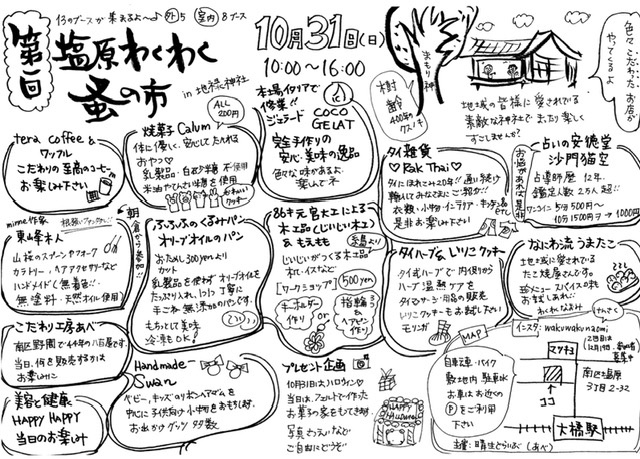 13のブースが集まるよ〜♪
外5 室内8ブース
第一回
塩原わくわく
蚤の市
in 地禄神社
10月31日(日)
10:00〜16:00
まもり神
樹齢
400年の
クスノキ
色々こだわったお店が
やってくるよ
地域の皆様に愛されている
素敵な神社でまったり楽しく
すごしませんか?
tera coffee &
ワッフル
こだわりの至高のコーヒー
お楽しみ下さい
焼菓子 Calum
ALL
200円
体に優しく、安心してたべれる
おやつ♡
乳製品・白砂糖 不使用
米油やてんさい糖を使用
かわいい
クッキー
本場イタリアで
修業!!
ジェラード COCO
GELAT
完全手作りの
安心・美味の逸品
色々な味があるよ
楽しみ〜
タイ雑貨
♡Rak Thai♡
タイにほれこみ20年!!通い続け
輸入してみなさまにご紹介!!
衣類・小物・インテリア・キッチン品etc
是非お試し下さい
占いの安徳堂
沙門猫空
占導師歴 12年
鑑定人数 2万人超!!
ワンコイン 5分500円〜
10分1500円→1000円
お悩があれば是非
mime作家
根強いファン多い!!
東山峯木人
山桜のスプーンやフォーク
カラトリー、ヘアアクセサリーなど
ハンドメイド(無着色)!!
無塗料・天然オイル使用
朝倉から参加
ふふふのくるみパン
オリーブオイルのパン
おためし300円より
カット
乳製品を使わずオリーブオイルを
たっぷり入れ、1つ1つ丁寧に
手ごね 無添加のパンです。
もちっとして美味
冷凍もOK!
86才元宮大工による
木工品(じいじい工)
&ももも
糸島より
じいじいがつくる木工品
木れ・イスなど
[ワークショップ]
500円
キーホルダー
作り
or
指輪&
ヘアピン
作り
タイハーブ&いりこクッキー
タイ式ハーブで内側から
ハーブ温熱ケアを
タイマッサージ・用品の販売
いりこクッキーもお試し下さい
モリンガ
なにわ流うまたこ
地域に愛されている
たこ焼屋さんです。
珍メニュー スパイスのも
お試しあれ!!
わくわくなおみ
けんさく
こだわり工房あべ
南区野間で44年の八百屋です。
当日、何を販売するかは
お楽しみに
美容と健康
HAPPY HAPPY
当日のお楽しみ
Handmade
Swan
ベビー、キッズのリボンヘアゴムを
中心に子供向け小物をおもちします。
お出かけグッズ 多数
プレゼント企画
10月31日は、ハロウィン♡
当日は、フェルトで作った
お菓子の家をもってきます。
写真さつえいなど
ご自由にどうぞ
HAPPY
Halloween
MAP
自転車・バイク
敷地内駐車OK
お車はお近くの
Ⓟをご利用
下さい
インスタ: wakuwakunaomi
マツキヨ
ココ
南区塩原
3丁目2-32
大橋駅
主催:晴生とらいぶ(あべ)